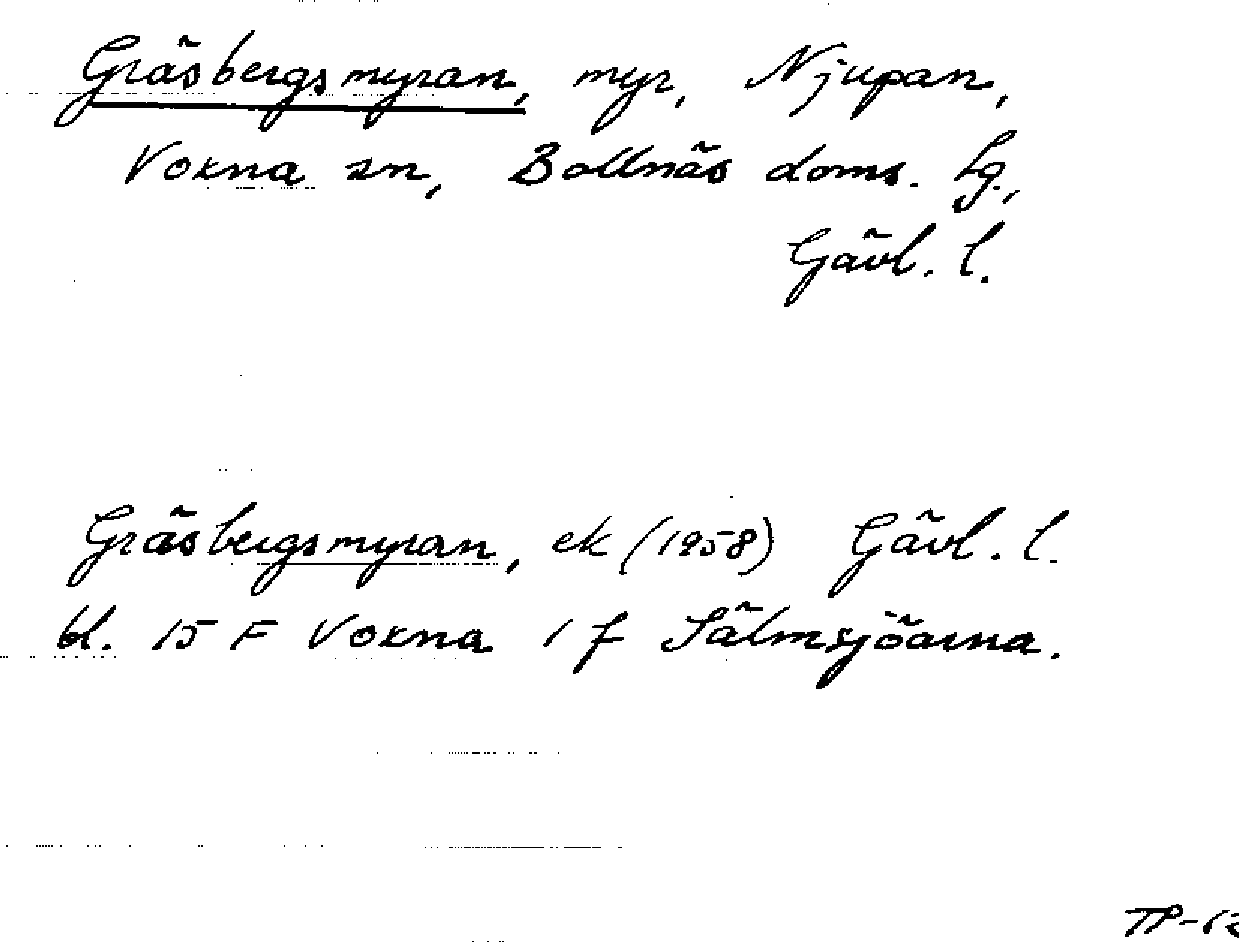 Gräsbergsmyran, myr, Njupan,
Voxna sn, Bollnäs doms. Lg.,
Gävl. l.
Gräsbergsmyran, ek (1958) Gävl. l.
bl. 15 F Voxna 1 f Sälmsjöarna.